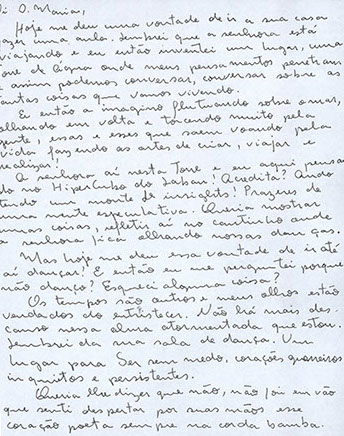 D. Maria,
Hoje me deu uma vontade de ir a sua casa
fazer uma aula. Lembrei que a senhora está
viajando e eu então inventei um lugar, uma
torre de água onde meus pensamentos penetram
e assim podemos conversar, conversar sobre as
tantas coisas que vamos vivendo.
E então a imagino flutuando sobre o mar,
olhando em volta e torcendo muito pela
gente, essas e esses que saem voando pela
vida fazendo as artes de criar, viajar e
realizar!
A senhora aí nesta Torre e eu aqui pensan
do no HiperCubo do Laban! Acredita? Ando
tendo um monte de insights! Prazeres de
uma mente especulativa. Queria mostrar
umas coisas, refletir aí no cantinho onde
a senhora fica olhando nossas danças.
Mas hoje me deu essa vontade de ir até
aí dançar! E então eu me perguntei porque
não danço? Esqueci alguma coisa?
Os tempos são outros e meus olhos estão
vendados do entristecer. Não há mais des
canso nessa alma atormentada que estou.
Lembrei da sua sala de dança. Um
lugar para Ser sem medo, corações guerreiros
inquietos e persistentes.
Queria lhe dizer que não, não foi em vão
que senti despertar por suas mãos esse
coração poeta sempre na corda bamba.